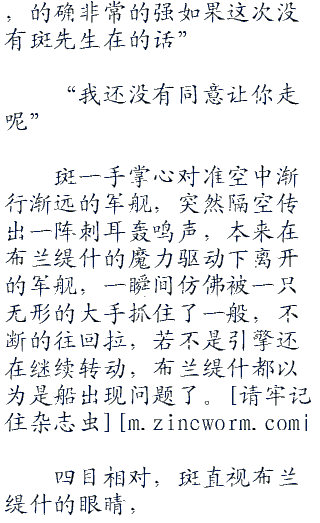 ，的确非常的强如果这次没
有斑先生在的话”
“我还没有同意让你走
呢”
斑一手掌心对准空中渐
行渐远的军舰，突然隔空传
出一阵刺耳轰鸣声，本来在
布兰缇什的魔力驱动下离开
的军舰，一瞬间仿佛被一只
无形的大手抓住了一般，不
断的往回拉，若不是引擎还
在继续转动，布兰缇什都以
为是船出现问题了。[请牢记
住杂志虫][m.zincworm.com]
四目相对，斑直视布兰
缇什的眼睛，